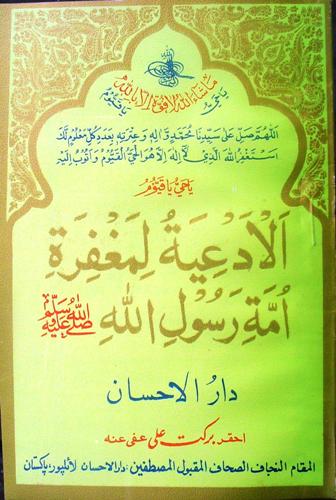 ماشاء الله لا قوة الا بالله
یا حی یا قیوم
اللهم صل علی سیدنا محمد و اله و عترته بعدد کل معلوم لک
استغفر الله الذی لا اله الا هو الحی القیوم و اتوب الیه
یا حی یا قیوم
الادعية لمغفرة
امة رسول الله صلى الله عليه وسلم
دار الاحسان
احقر برکت علی عفی عنه
المقام النجاف الصحاف المقبول المصطفین : دار الاحسان لائلپور : پاکستان